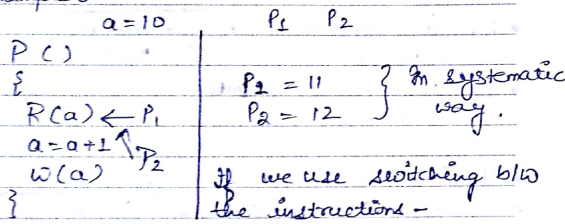 a = 10
P ( )
{
R(a) ← P1
a = a+1 P2
W(a)
}
P1 P2
P1 = 11 } In systematic
P2 = 12 way.
If we use switching b/w
the instructions -